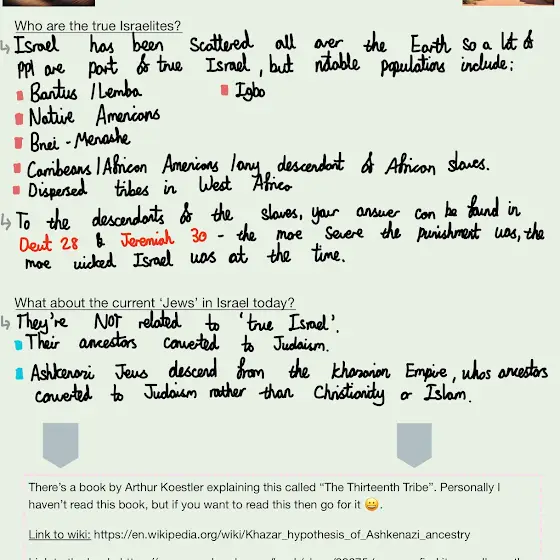 Who are the true Israelites?
↳ Israel has been scattered all over the Earth so a lot of
ppl are part of true Israel, but notable populations include:
Bantus / Lemba
Igbo
Native Americans
Bnei - Menashe
Carribeans / African Americans / any descendant of African slaves.
Dispersed tribes in West Africa
↳ To the descendants of the slaves, your answer can be found in
Deut 28 & Jeremiah 30 - the more severe the punishment was, the
more wicked Israel was at the time.
What about the current 'Jews' in Israel today?
↳ They're NOT related to 'true Israel'.
Their ancestors converted to Judaism.
Ashkenazi Jews descend from the khazarian Empire, whos ancestors
converted to Judaism rather than Christianity or Islam.
There's a book by Arthur Koestler explaining this called "The Thirteenth Tribe". Personally I
haven't read this book, but if you want to read this then go for it 😀.
Link to wiki: https://en.wikipedia.org/wiki/Khazar_hypothesis_of_Ashkenazi_ancestry